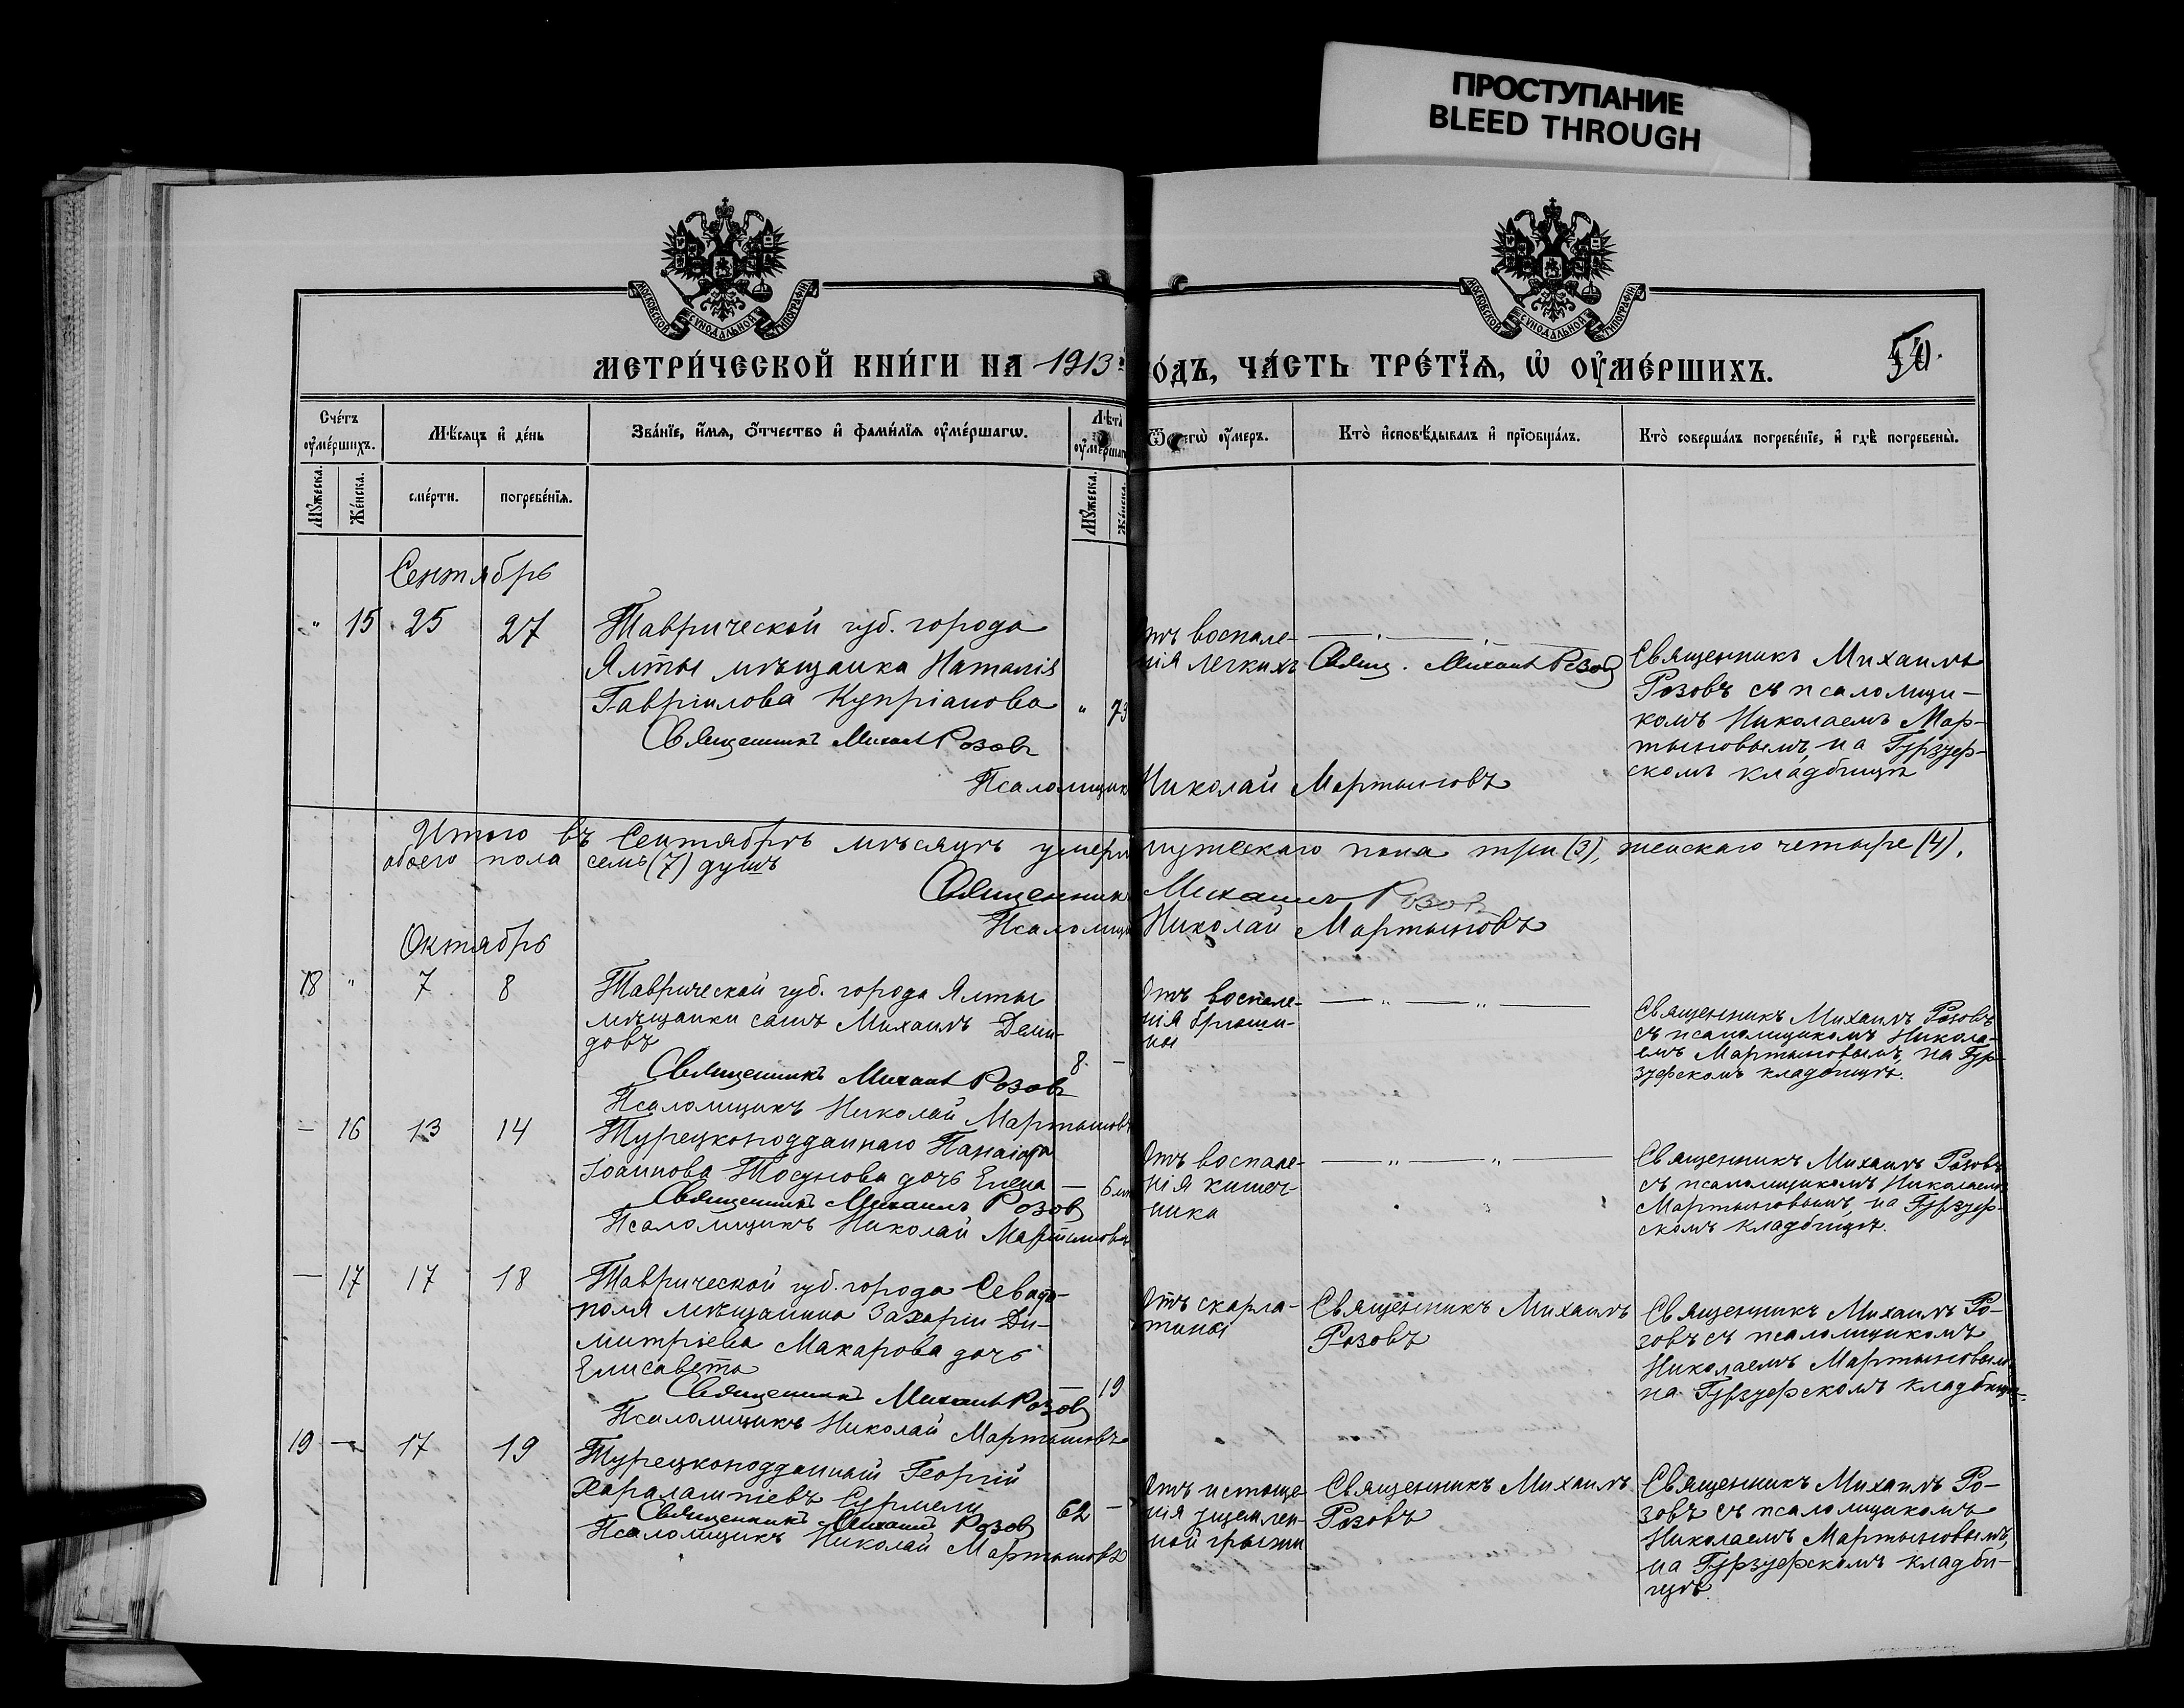 ПРОСТУПАНИЕ
BLEED THROUGH
МОСКОВСКОЙ СѴНОДАЛЬНОЙ ТИПОГРАФІИ
МОСКОВСКОЙ СѴНОДАЛЬНОЙ ТИПОГРАФІИ
МЕТРИ́ЧЕСКОЙ КНИ́ГИ НА 1913
О́ДЪ, ЧА́СТЬ ТРЕ́ТЇѦ, Ѡ҆ ОУ҆МЕ́РШИХЪ.
Сче́тъ оу҆ме́ршихъ.
Мѣ́сяцъ и҆ де́нь
Зва́нїе, и҆́мѧ, ѻ҆́тчество и҆ фами́лїѧ оу҆ме́ршагѡ.
Лѣ́та оу҆ме́ршагѡ
егѡ̀ оу҆́меръ.
Кто̀ и҆сповѣ́дывалъ и҆ прїѻбща́лъ.
Кто̀ соверша́лъ погребе́нїе, и҆ гдѣ̀ погребены̀.
Мꙋ́жеска.
Же́нска.
сме́рти.
погребе́нїѧ.
Мꙋ́жеска.
Же́нска.
Сентябрь
" 15 25 27
Таврической губ. города
Ялты мѣщанка Наталія
Гавріилова Купріанова " 73
Священникъ Михаилъ Розовъ
Псаломщик Николай Мартыновъ
Отъ воспале-
нія легкихъ
Свящ. Михаилъ Розовъ
Священникъ Михаилъ
Розовъ съ псаломщи-
комъ Николаемъ Мар-
тыновымъ, на Гурзуф-
скомъ кладбищѣ
Итого въ Сентябрѣ мѣсяцѣ умерло мужескаго пола три (3), женскаго четыре (4),
обоего пола семь (7) душъ
Священник Михаилъ Розовъ
Псаломщ Николай Мартыновъ
Октябрь
18 " 7 8
Таврической губ. города Ялты
мѣщанки сынъ Михаилъ Деми-
довъ 8 -
Священникъ Михаилъ Розовъ
Псаломщикъ Николай Мартыновъ
Отъ воспале-
нія брюши-
ны
Священникъ Михаилъ Розовъ
съ псаломщикомъ Никола-
емъ Мартыновымъ, на Гур-
зуфскомъ кладбищѣ.
- 16 13 14
Турецкоподданнаго
Іоаннова Тосунова дочь Елена - 6
Священникъ Михаилъ Розовъ
Псаломщикъ Николай Мартыновъ
Отъ воспале-
нія кишеч-
ника
Священникъ Михаилъ Розовъ
съ псаломщикомъ Николаемъ
Мартыновымъ, на Гурзуф-
скомъ кладбищѣ.
- 17 17 18
Таврической губ. города Севасто-
поля мѣщанина Захаріи Ди-
митріева Макарова дочь
Елисавета - 19
Священникъ Михаилъ Розовъ
Псаломщикъ Николай Мартыновъ
Отъ скарла-
тины
Священникъ Михаилъ
Розовъ
Священникъ Михаилъ Ро-
зовъ съ псаломщикомъ
Николаемъ Мартыновымъ
на Гурзуфскомъ кладбищѣ.
19 - 17 19
Турецкоподданный Георгій
Харалампіевъ Сурмели 62 -
Священникъ Михаилъ Розовъ
Псаломщикъ Николай Мартыновъ
Отъ истоще-
нія ущемлен-
ной грыжи
Священникъ Михаилъ
Розовъ
Священникъ Михаилъ Ро-
зовъ съ псаломщикомъ
Николаемъ Мартыновымъ,
на Гурзуфскомъ кладби-
щѣ.